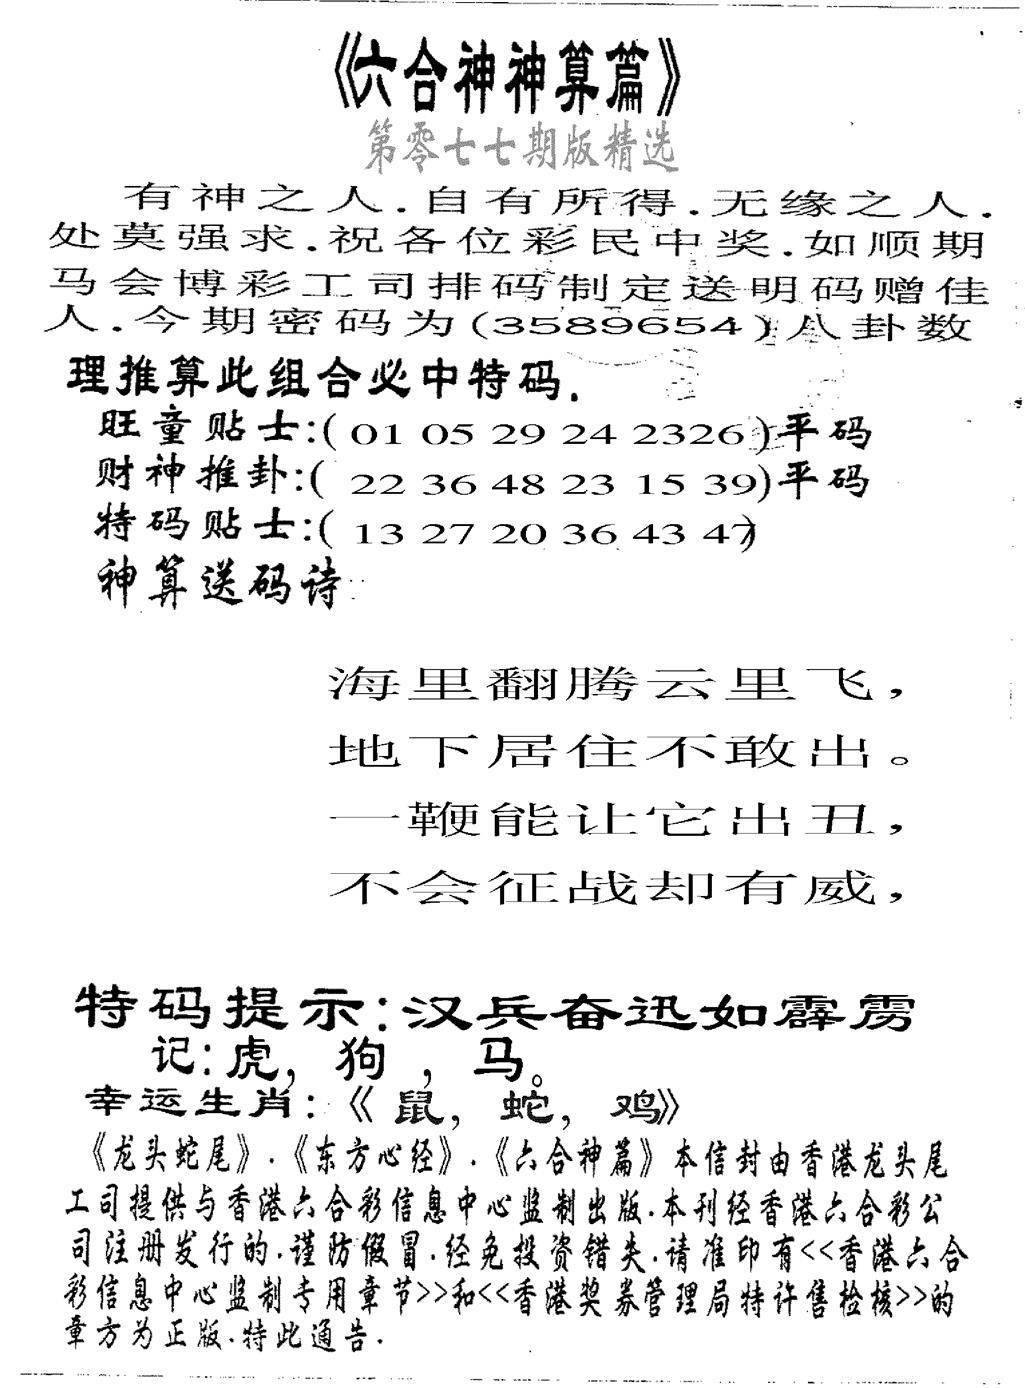 《六合神神算篇》
第零七七期版精选
有神之人.自有所得.无缘之人.
处莫强求.祝各位彩民中奖.如顺期
马会博彩工司排码制定送明码赠佳
人.今期密码为(3589654)八卦数
理推算此组合必中特码.
旺童贴士:( 01 05 29 24 2326 )平码
财神推卦:( 22 36 48 23 15 39)平码
特码贴士:( 13 27 20 36 43 47)
神算送码诗
海里翻腾云里飞，
地下居住不敢出。
一鞭能让它出丑，
不会征战却有威，
特码提示:汉兵奋迅如霹雳
记:虎，狗，马。
幸运生肖:《鼠，蛇，鸡》
《龙头蛇尾》.《东方心经》.《六合神篇》本信封由香港龙头尾
工司提供与香港六合彩信息中心监制出版.本刊经香港六合彩公
司注册发行的.谨防假冒.经免投资错失.请准印有<<香港六合
彩信息中心监制专用章节>>和<<香港奖券管理局特许售检核>>的
章方为正版.特此通告.